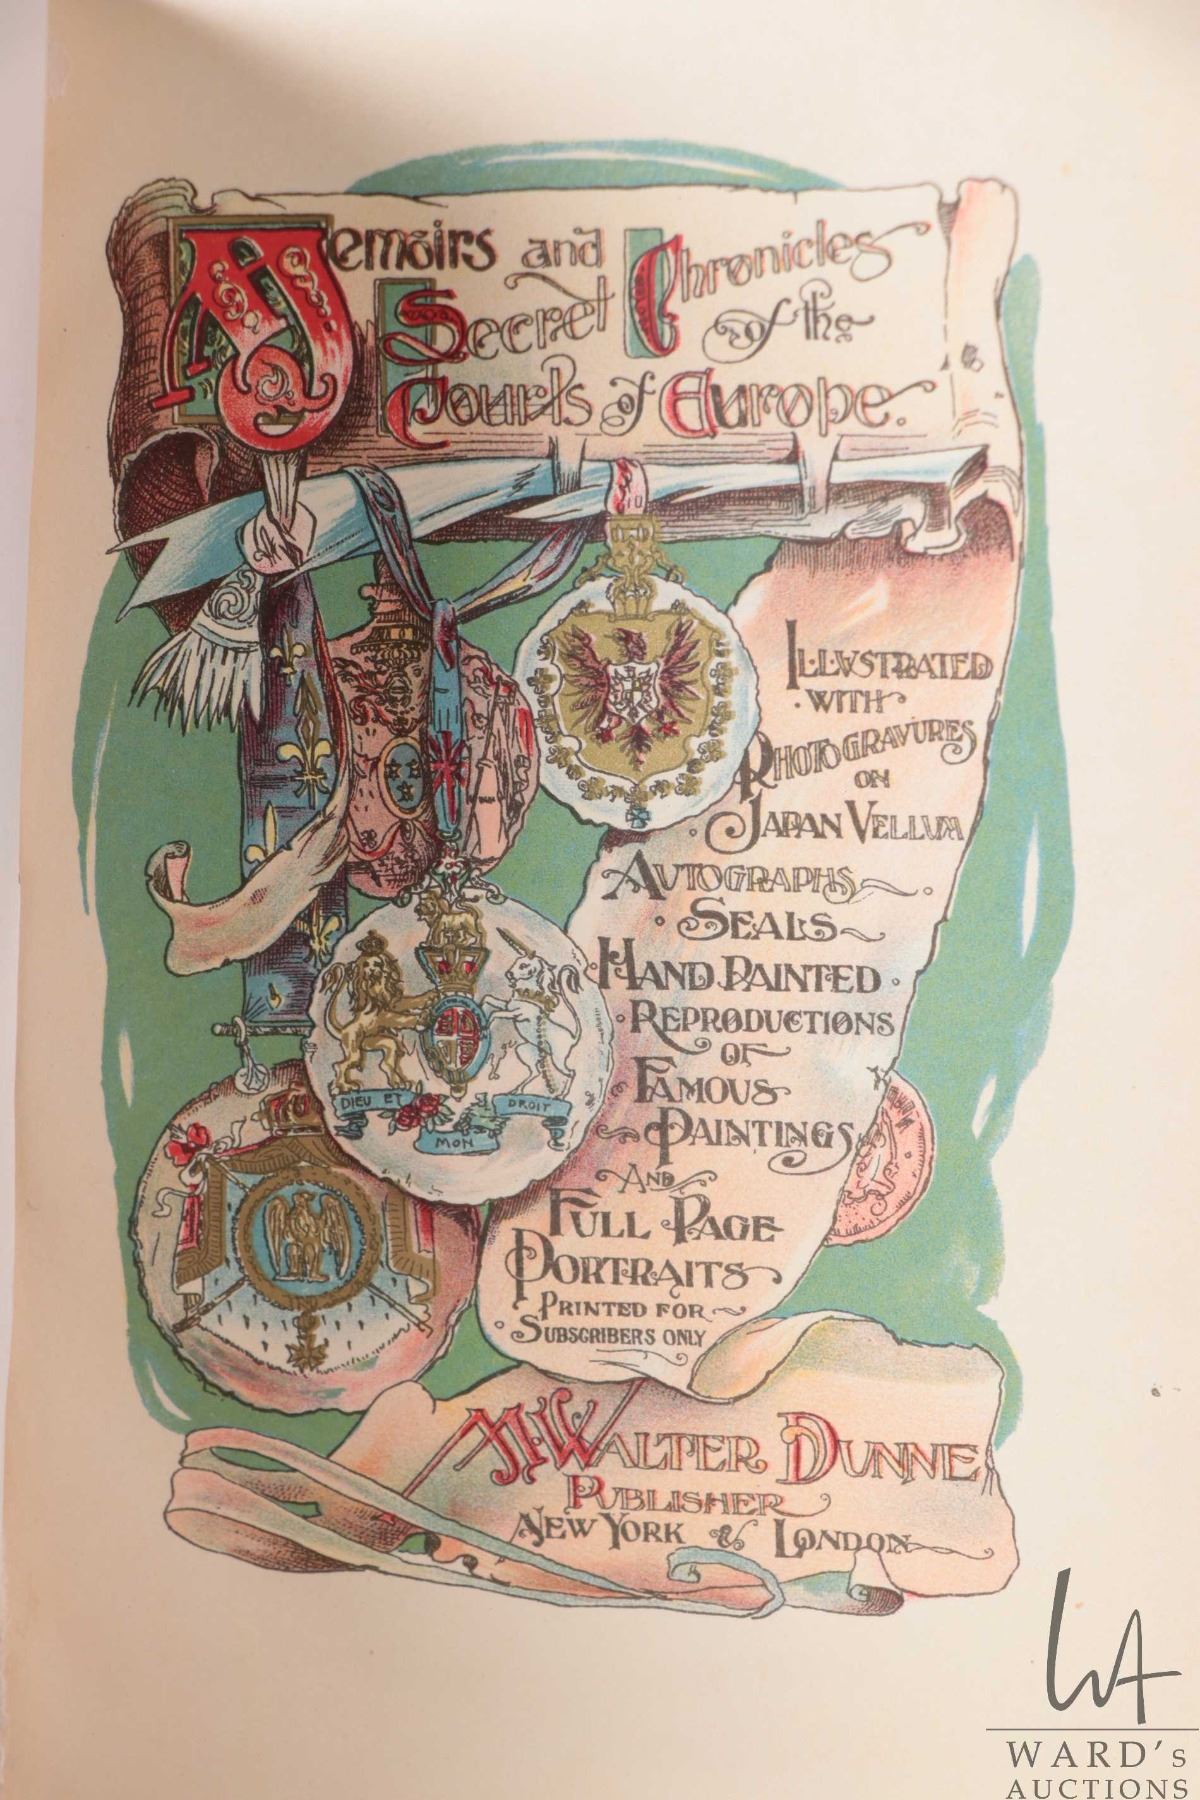 Memoirs and
Secret Chronicles
of the
Courts of Europe.
Illustrated
with
Photogravures
on
Japan Vellum
Autographs
Seals
Hand Painted
Reproductions
of
Famous
Paintings
And
Full Page
Portraits
Printed for
Subscribers only
DIEU ET
MON
DROIT
M. Walter Dunne
Publisher
New York & London
WA
WARD's
AUCTIONS